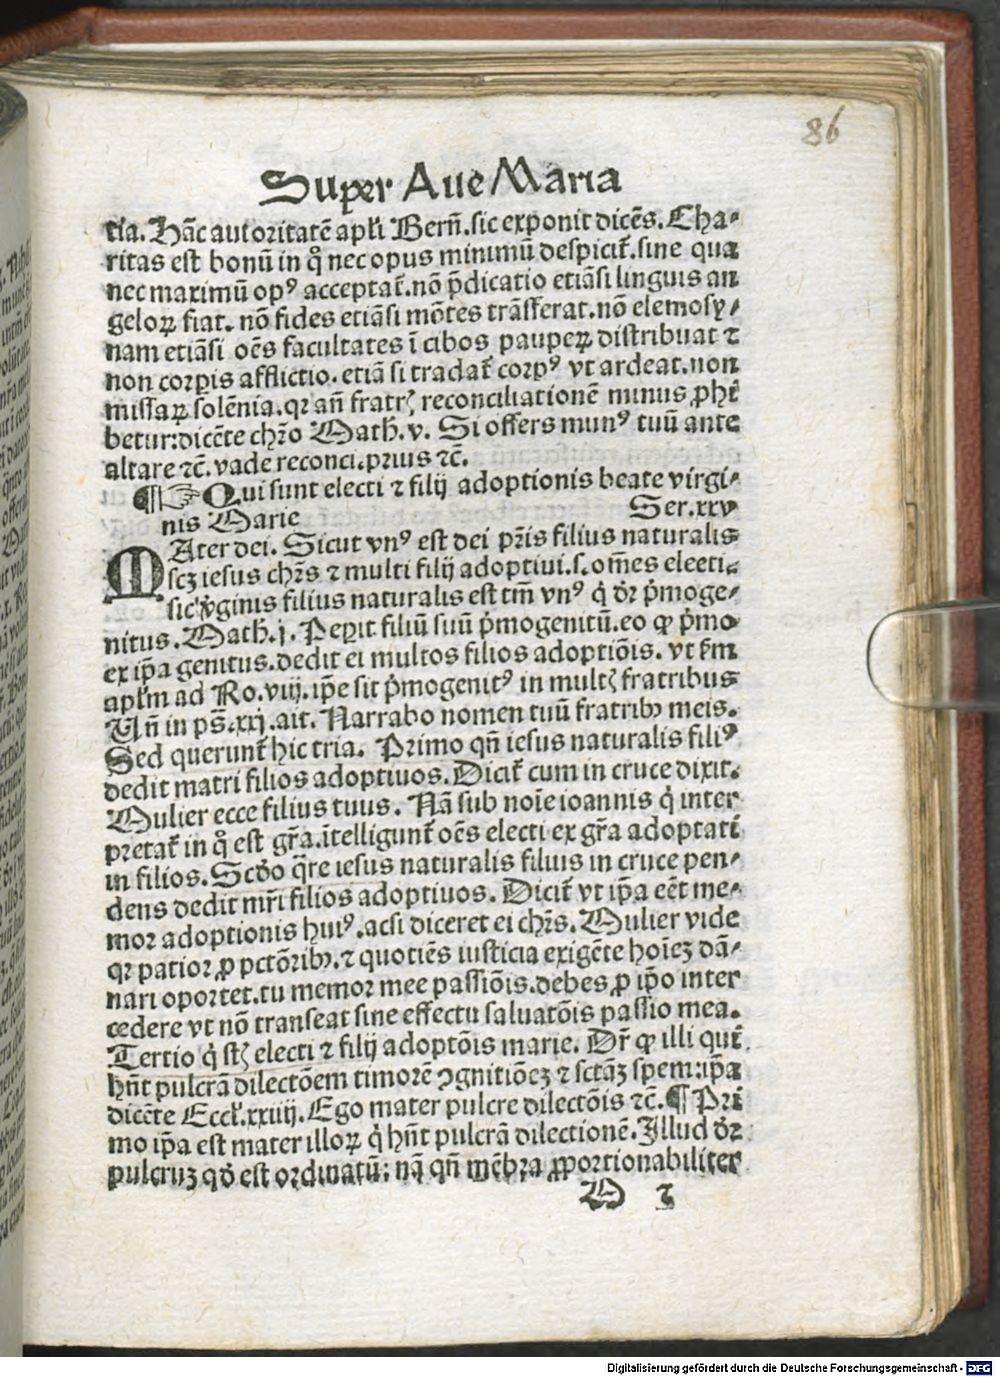 86
Super Aue Maria
tia. Hãc autoritatẽ apłi Bern̄. sic exponit dicẽs. Cha⸗
ritas est bonũ in q̊ nec opus minimũ despicit̃. sine qua
nec maximũ opꝰ acceptat̃. nõ p̃dicatio etiãsi linguis an
geloꝝ fiat. nõ fides etiãsi mõtes trãsferat. nõ elemosy⸗
nam etiãsi oẽs facultates ĩ cibos paupeꝝ distribuat ⁊
non corpis afflictio. etiã si tradat̃ corpꝰ vt ardeat. non
missaꝝ solẽnia. qꝛ añ fratrꝭ reconciliationẽ minus ꝓhi
betur: dicẽte chr̃o Math. v. Si offers munꝰ tuũ ante
altare ⁊c̃. vade reconci. prius ⁊c̃.
¶☞ Qui sunt electi ⁊ filij adoptionis beate virgi⸗
nis Marie Ser. xxv
MAter dei. Sicut vnꝰ est dei pr̃is filius naturalis
scꝫ iesus chr̃s ⁊ multi filij adoptiui. s. om̃es electi.
sic v̓ginis filius naturalis est tm̃ vnꝰ q̓ dr̃ p̓moge⸗
nitus. Math. j. Peperit filiũ suũ p̓mogenitũ. eo ꝙ p̓mo
ex ip̃a genitus. dedit ei multos filios adoptiõis. vt ẜm
apłm ad Ro. viij. ip̃e sit p̓mogenitꝰ in multꝭ fratribus
Vñ in ps̃. xxj. ait. Narrabo nomen tuũ fratribꝫ meis.
Sed querunt̃ hic tria. Primo qñ iesus naturalis filiꝰ
dedit matri filios adoptiuos. Dicit̃ cum in cruce dixit.
Mulier ecce filius tuus. Nã sub noĩe ioannis q̓ inter
pretat̃ in q̊ est gr̃a. ĩtelligunt̃ oẽs electi ex gr̃a adoptati
in filios. Scd̓o q̃re iesus naturalis filius in cruce pen⸗
dens dedit mr̃i filios adoptiuos. Dicit̃ vt ip̃a eẽt me⸗
mor adoptionis huiꝰ. acsi diceret ei chr̃s. Mulier vide
qꝛ patior ꝓ pctõribꝫ. ⁊ quotiẽs iusticia exigẽte hoĩeꝫ dã⸗
nari oportet. tu memor mee passiõis. debes ꝓ ip̃o inter
cedere vt nõ transeat sine effectu saluatõis passio mea.
Tertio q̓ st̃ electi ⁊ filij adoptõis marie. Dr̃ ꝙ illi qui
hñt pulcrã dilectõem timorẽ ꝯgnitiõeꝫ ⁊ sctãꝫ spem: ip̃a
dicẽte Eccł. xxiiij. Ego mater pulcre dilectõis ⁊c̃. ¶ Pri
mo ip̃a est mater illoꝝ q̓ hñt pulcrã dilectionẽ. Illud dr̃
pulcruꝫ qd̓ est ordinatũ: nã qñ mẽbra ꝓportionabiliter
O 2
Digitalisierung gefördert durch die Deutsche Forschungsgemeinschaft - DFG